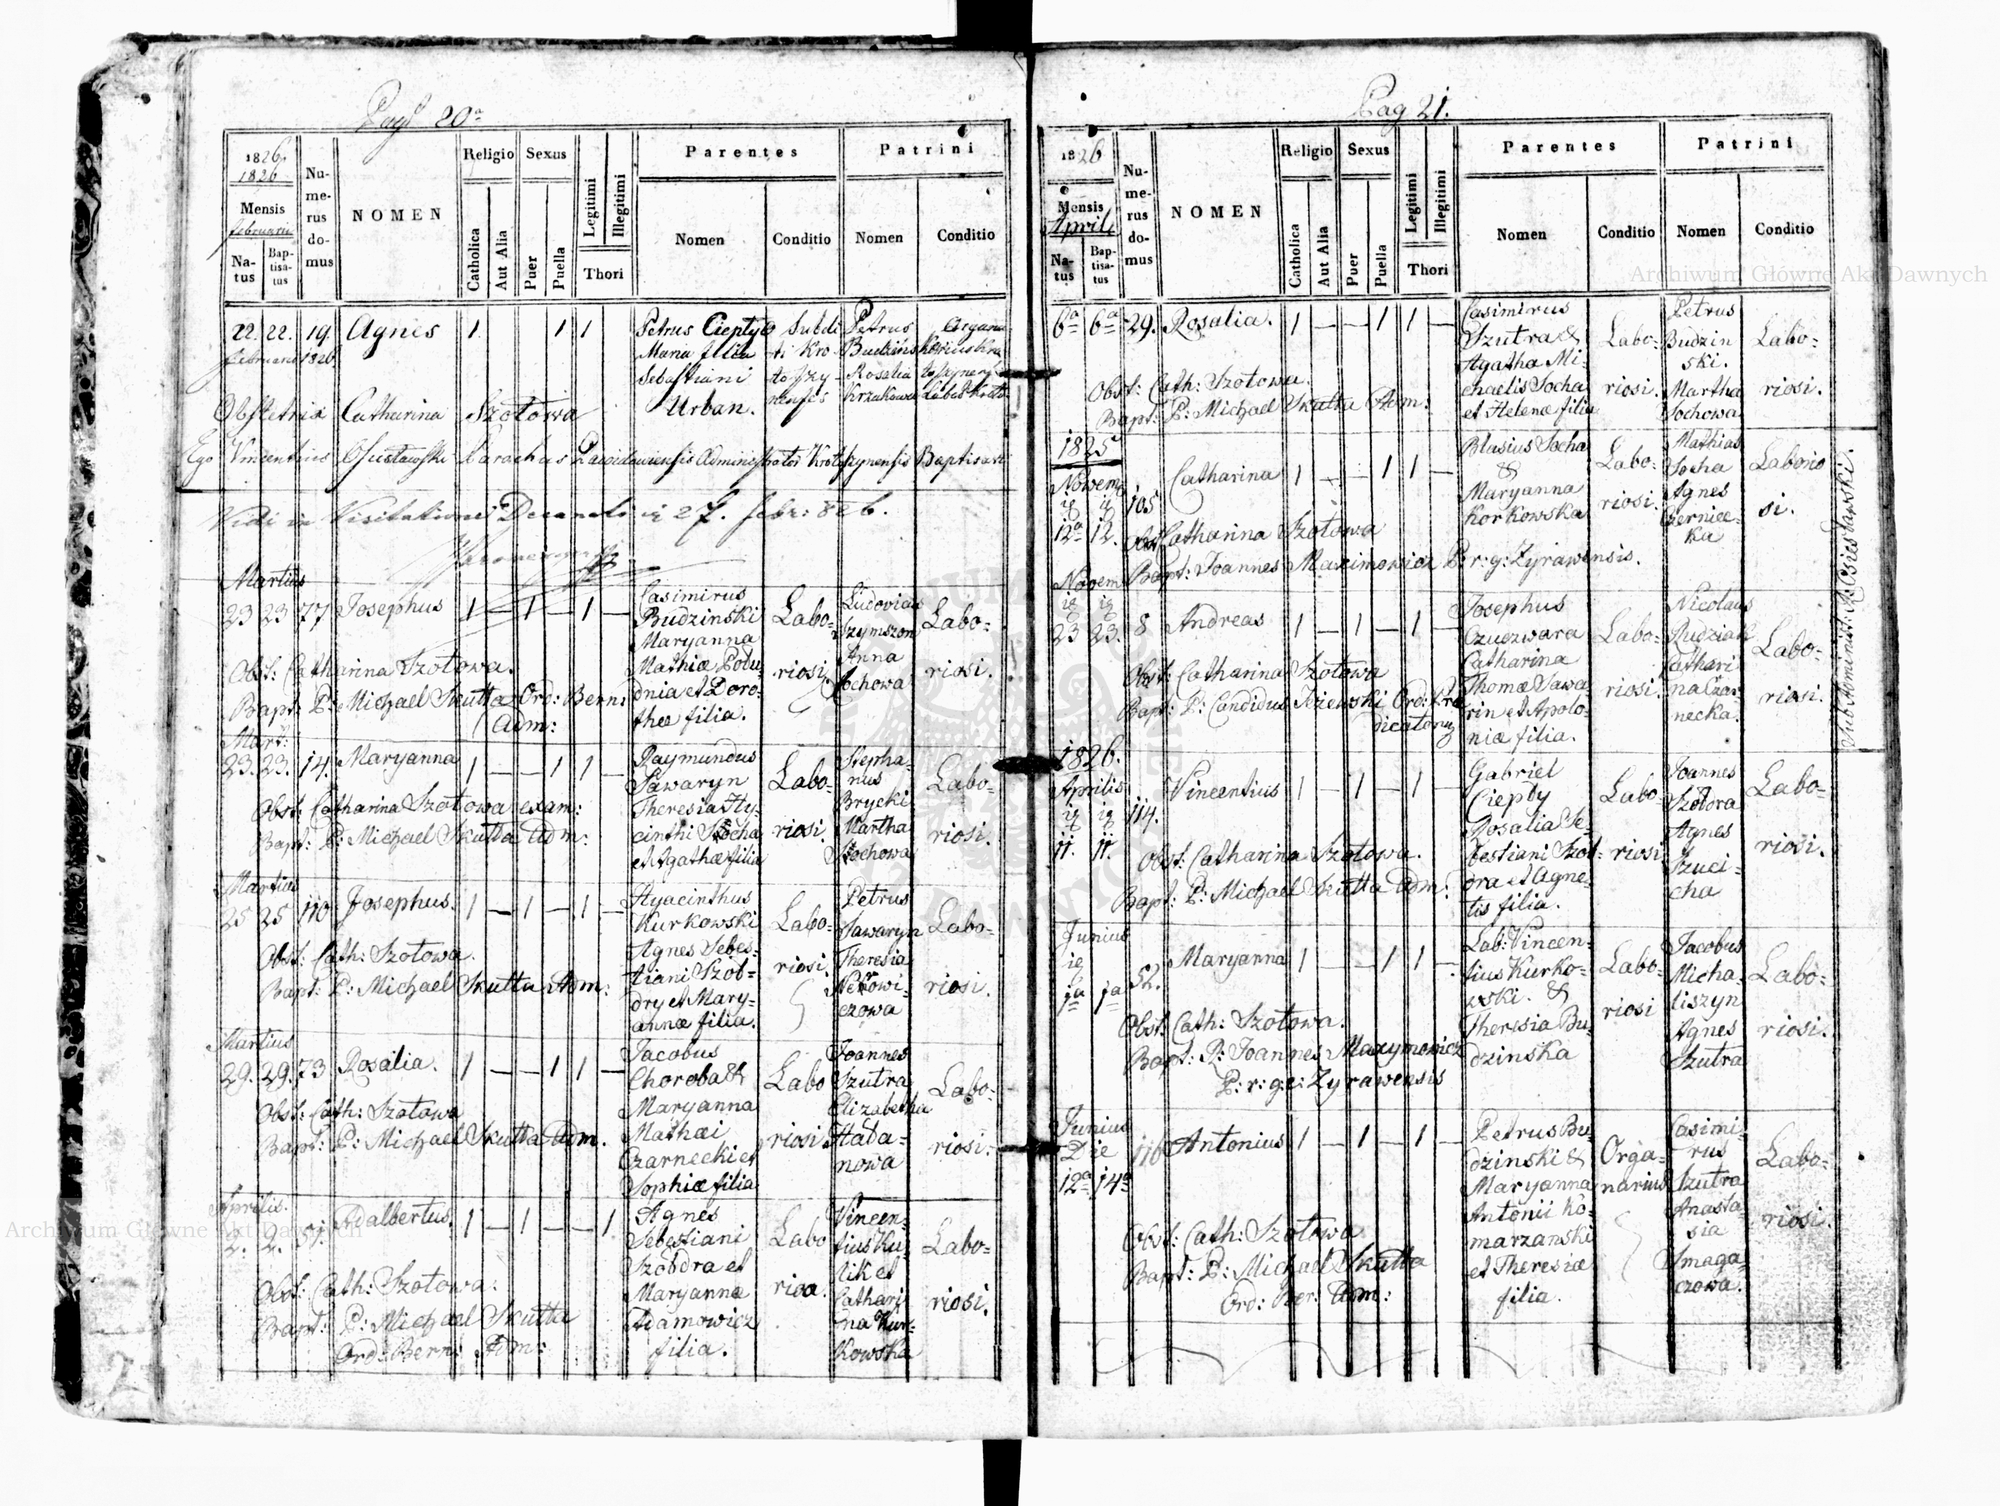 Pag 20a
1826
1826
Mensis
februarii
Natus
Baptisatus
Numerus domus
NOMEN
Religio
Catholica
Aut Alia
Sexus
Puer
Puella
Legitimi
Illegitimi
Thori
Parentes
Nomen
Conditio
Patrini
Nomen
Conditio
22. 22. 19. Agnes 1 1 1
februarii 1826
Petrus Ciepły
Maria filia
Sebastiani
Urban.
Subdi
ti Kro
toszy-
nensis
Petrus
Budzińs
Rosalia
Krzakowa
Obstetrix Catharina Szotowa
Ego Vincentius Parochus Administrator Krotoszynensis Baptisavi
Vidi in Visitatione Decanali die 27. febr: 826.
Martius
23 23 77 Josephus 1 — 1 — 1 —
Casimirus
Budzinski
Maryanna
Mathiæ Podu
dnia et Doro-
theæ filia.
Labo-
riosi.
Ludovicus
Szymszon
Anna
Sochowa
Labo-
riosi.
Obst: Catharina Szotowa.
Bapt: P: Michael Skutta Ord: Bern:
Adm:
Mart:
23. 23. 14. Maryanna 1 — — 1 1 —
Raymundus
Sawaryn
Theresia Hy-
cinthi Socha
et Agathæ filia
Labo-
riosi.
Stepha-
nus
Brycki
Martha
Sochowa
Labo-
riosi.
Obst: Catharina Szotowa exam:
Bapt: P: Michael Skutta Adm:
Martius
25 25 110 Josephus. 1 — 1 — 1 —
Hyacinthus
Kurkowski
Agnes Sebes-
tiani Szob-
dry et Mary-
annæ filia.
Labo-
riosi.
Petrus
Sawaryn
Theresia
Nekowi-
czowa
Labo-
riosi.
Obst: Cath: Szotowa.
Bapt: P: Michael Skutta Adm:
Martius
29. 29. 73 Rosalia. 1 — — 1 1 —
Jacobus
Choroba &
Maryanna
Mathæi
Czarnecki et
Sophiæ filia
Labo
riosi
Joannes
Szutra
Elizabetha
Hada-
nowa
Labo-
riosi.
Obst: Cath: Szotowa
Bapt: P: Michael Skutta Adm.
Aprilis.
2. 2. 51. Adalbertus. 1 — 1 — — 1
Agnes
Sebestiani
Szobdra et
Maryannæ
Adamowicz
filia.
Labo
riosa.
Vincen-
tius Ku-
lik et
Cathari-
na Kur-
kowska
Labo-
riosi.
Obst: Cath: Szotowa.
Bapt: P: Michael Skutta
Ord: Bern: Adm:
Pag 21.
1826
Mensis
Aprilis
Natus
Baptisatus
Numerus domus
NOMEN
Religio
Catholica
Aut Alia
Sexus
Puer
Puella
Legitimi
Illegitimi
Thori
Parentes
Nomen
Conditio
Patrini
Nomen
Conditio
6a 6a 29. Rosalia. 1 — — 1 1 —
Casimirus
Szutra &
Agatha Mi-
chaelis Socha
et Helenæ filia
Labo-
riosi.
Petrus
Budzin
ski.
Martha
Sochowa
Labo-
riosi.
Obst: Cath: Szotowa.
Bapt: P: Michael Skutta Adm:
1825
Novem
12a 12. 105 Catharina 1 — — 1 1 —
Blasius Socha
&
Maryanna
Korkowska
Labo-
riosi.
Mathias
Socha
Agnes
Czerniec-
ka
Laborio
si.
Obst: Catharina Szotowa
Bapt: Joannes Maximowicz P: r: g: Zyrawensis.
Novem
23 23. 8 Andreas 1 — 1 — 1 —
Josephus
Czuczwara
Catharina
Thomæ Sawa-
rin et Apolo-
niæ filia.
Labo-
riosi.
Nicolaus
Rudziak
Cathari
na Czar-
necka.
Labo-
riosi.
Obst: Catharina Szotowa
Bapt: P: Candidus Ord: Præ
dicatorum
1826.
Aprilis
11. 11. 114. Vincentius 1 — 1 — 1 —
Gabriel
Ciepły
Rosalia Se-
bestiani Szob-
dra et Agne-
tis filia.
Labo-
riosi
Joannes
Szobdra
Agnes
Szuci-
cha
Labo-
riosi.
Obst: Catharina Szotowa.
Bapt: P: Michael Skutta Adm:
Junius
1a 1a 52. Maryanna 1 — — 1 1 —
Lab: Vincen-
tius Kurko-
wski. &
Theresia Bu-
dzinska
Labo-
riosi
Jacobus
Micha-
liszyn
Agnes
Szutra
Labo-
riosi.
Obst: Cath: Szotowa.
Bapt: P: Joannes Maxymowicz
P: r: g: c: Zyrawensis
Junius
Die
12a 14a 116 Antonius 1 — 1 — 1 —
Petrus Bu-
dzinski &
Maryanna
Antonii Ko-
marzanski
et Theresiæ
filia.
Orga-
narius
Casimi-
rus
Szutra
Anasta-
sia
Smaga-
czowa.
Labo-
riosi.
Obst: Cath: Szotowa
Bapt: P: Michael Skutta
Ord: Ber: Adm:
Archiwum Główne Akt Dawnych
Archiwum Główne Akt Dawnych